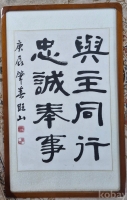 與主同行
忠誠奉事
庚辰肇春龍山
kobay